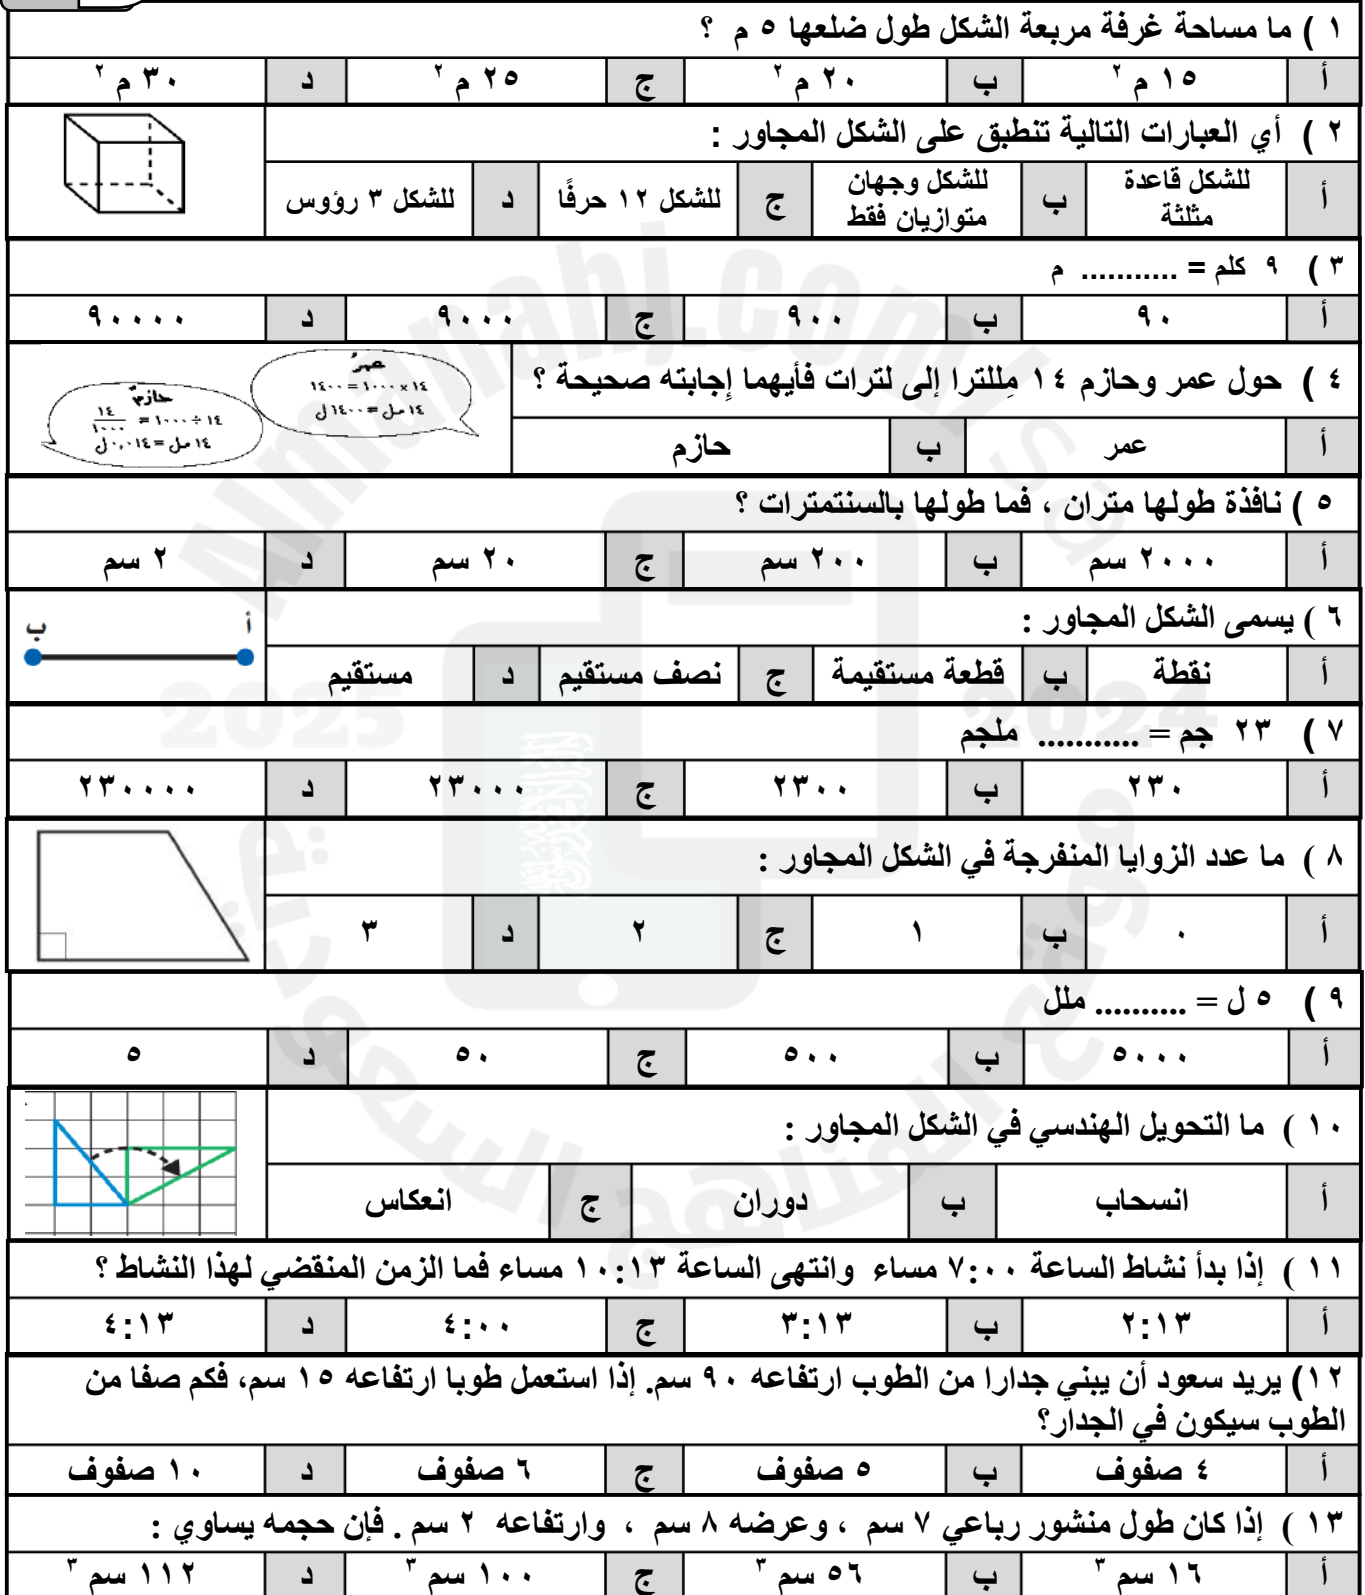 ١ ) ما مساحة غرفة مربعة الشكل طول ضلعها ٥ م ؟
أ ١٥ م ٢ ب ٢٠ م ٢ ج ٢٥ م ٢ د ٣٠ م ٢
٢ ) أي العبارات التالية تنطبق على الشكل المجاور :
أ للشكل قاعدة مثلثة ب للشكل وجهان متوازيان فقط ج للشكل ١٢ حرفًا د للشكل ٣ رؤوس
٣ ) ٩ كلم = ........... م
أ ٩٠ ب ٩٠٠ ج ٩٠٠٠ د ٩٠٠٠٠
٤ ) حول عمر وحازم ١٤ مِللترا إلى لترات فأيهما إِجابته صحيحة ؟
عمرُ
١٤ × ١٠٠٠ = ١٤٠٠٠
١٤ مل = ١٤٠٠٠ ل
حازمٌ
١٤ ÷ ١٠٠٠ = ١٤/١٠٠٠
١٤ مل = ٠,٠١٤ ل
أ عمر ب حازم
٥ ) نافذة طولها متران ، فما طولها بالسنتمترات ؟
أ ٢٠٠٠ سم ب ٢٠٠ سم ج ٢٠ سم د ٢ سم
٦ ) يسمى الشكل المجاور :
أ ب
أ نقطة ب قطعة مستقيمة ج نصف مستقيم د مستقيم
٧ ) ٢٣ جم = ........... ملجم
أ ٢٣٠ ب ٢٣٠٠ ج ٢٣٠٠٠ د ٢٣٠٠٠٠
٨ ) ما عدد الزوايا المنفرجة في الشكل المجاور :
أ ٠ ب ١ ج ٢ د ٣
٩ ) ٥ ل = .......... ملل
أ ٥٠٠٠ ب ٥٠٠ ج ٥٠ د ٥
١٠ ) ما التحويل الهندسي في الشكل المجاور :
أ انسحاب ب دوران ج انعكاس
١١ ) إذا بدأ نشاط الساعة ٧:٠٠ مساء وانتهى الساعة ١٠:١٣ مساء فما الزمن المنقضي لهذا النشاط ؟
أ ٢:١٣ ب ٣:١٣ ج ٤:٠٠ د ٤:١٣
١٢) يريد سعود أن يبني جدارا من الطوب ارتفاعه ٩٠ سم. إذا استعمل طوبا ارتفاعه ١٥ سم، فكم صفا من
الطوب سيكون في الجدار؟
أ ٤ صفوف ب ٥ صفوف ج ٦ صفوف د ١٠ صفوف
١٣ ) إذا كان طول منشور رباعي ٧ سم ، وعرضه ٨ سم ، وارتفاعه ٢ سم . فإن حجمه يساوي :
أ ١٦ سم ٣ ب ٥٦ سم ٣ ج ١٠٠ سم ٣ د ١١٢ سم ٣
Almanahj.com/sa
2025 2024
موقع المناهج السعودية